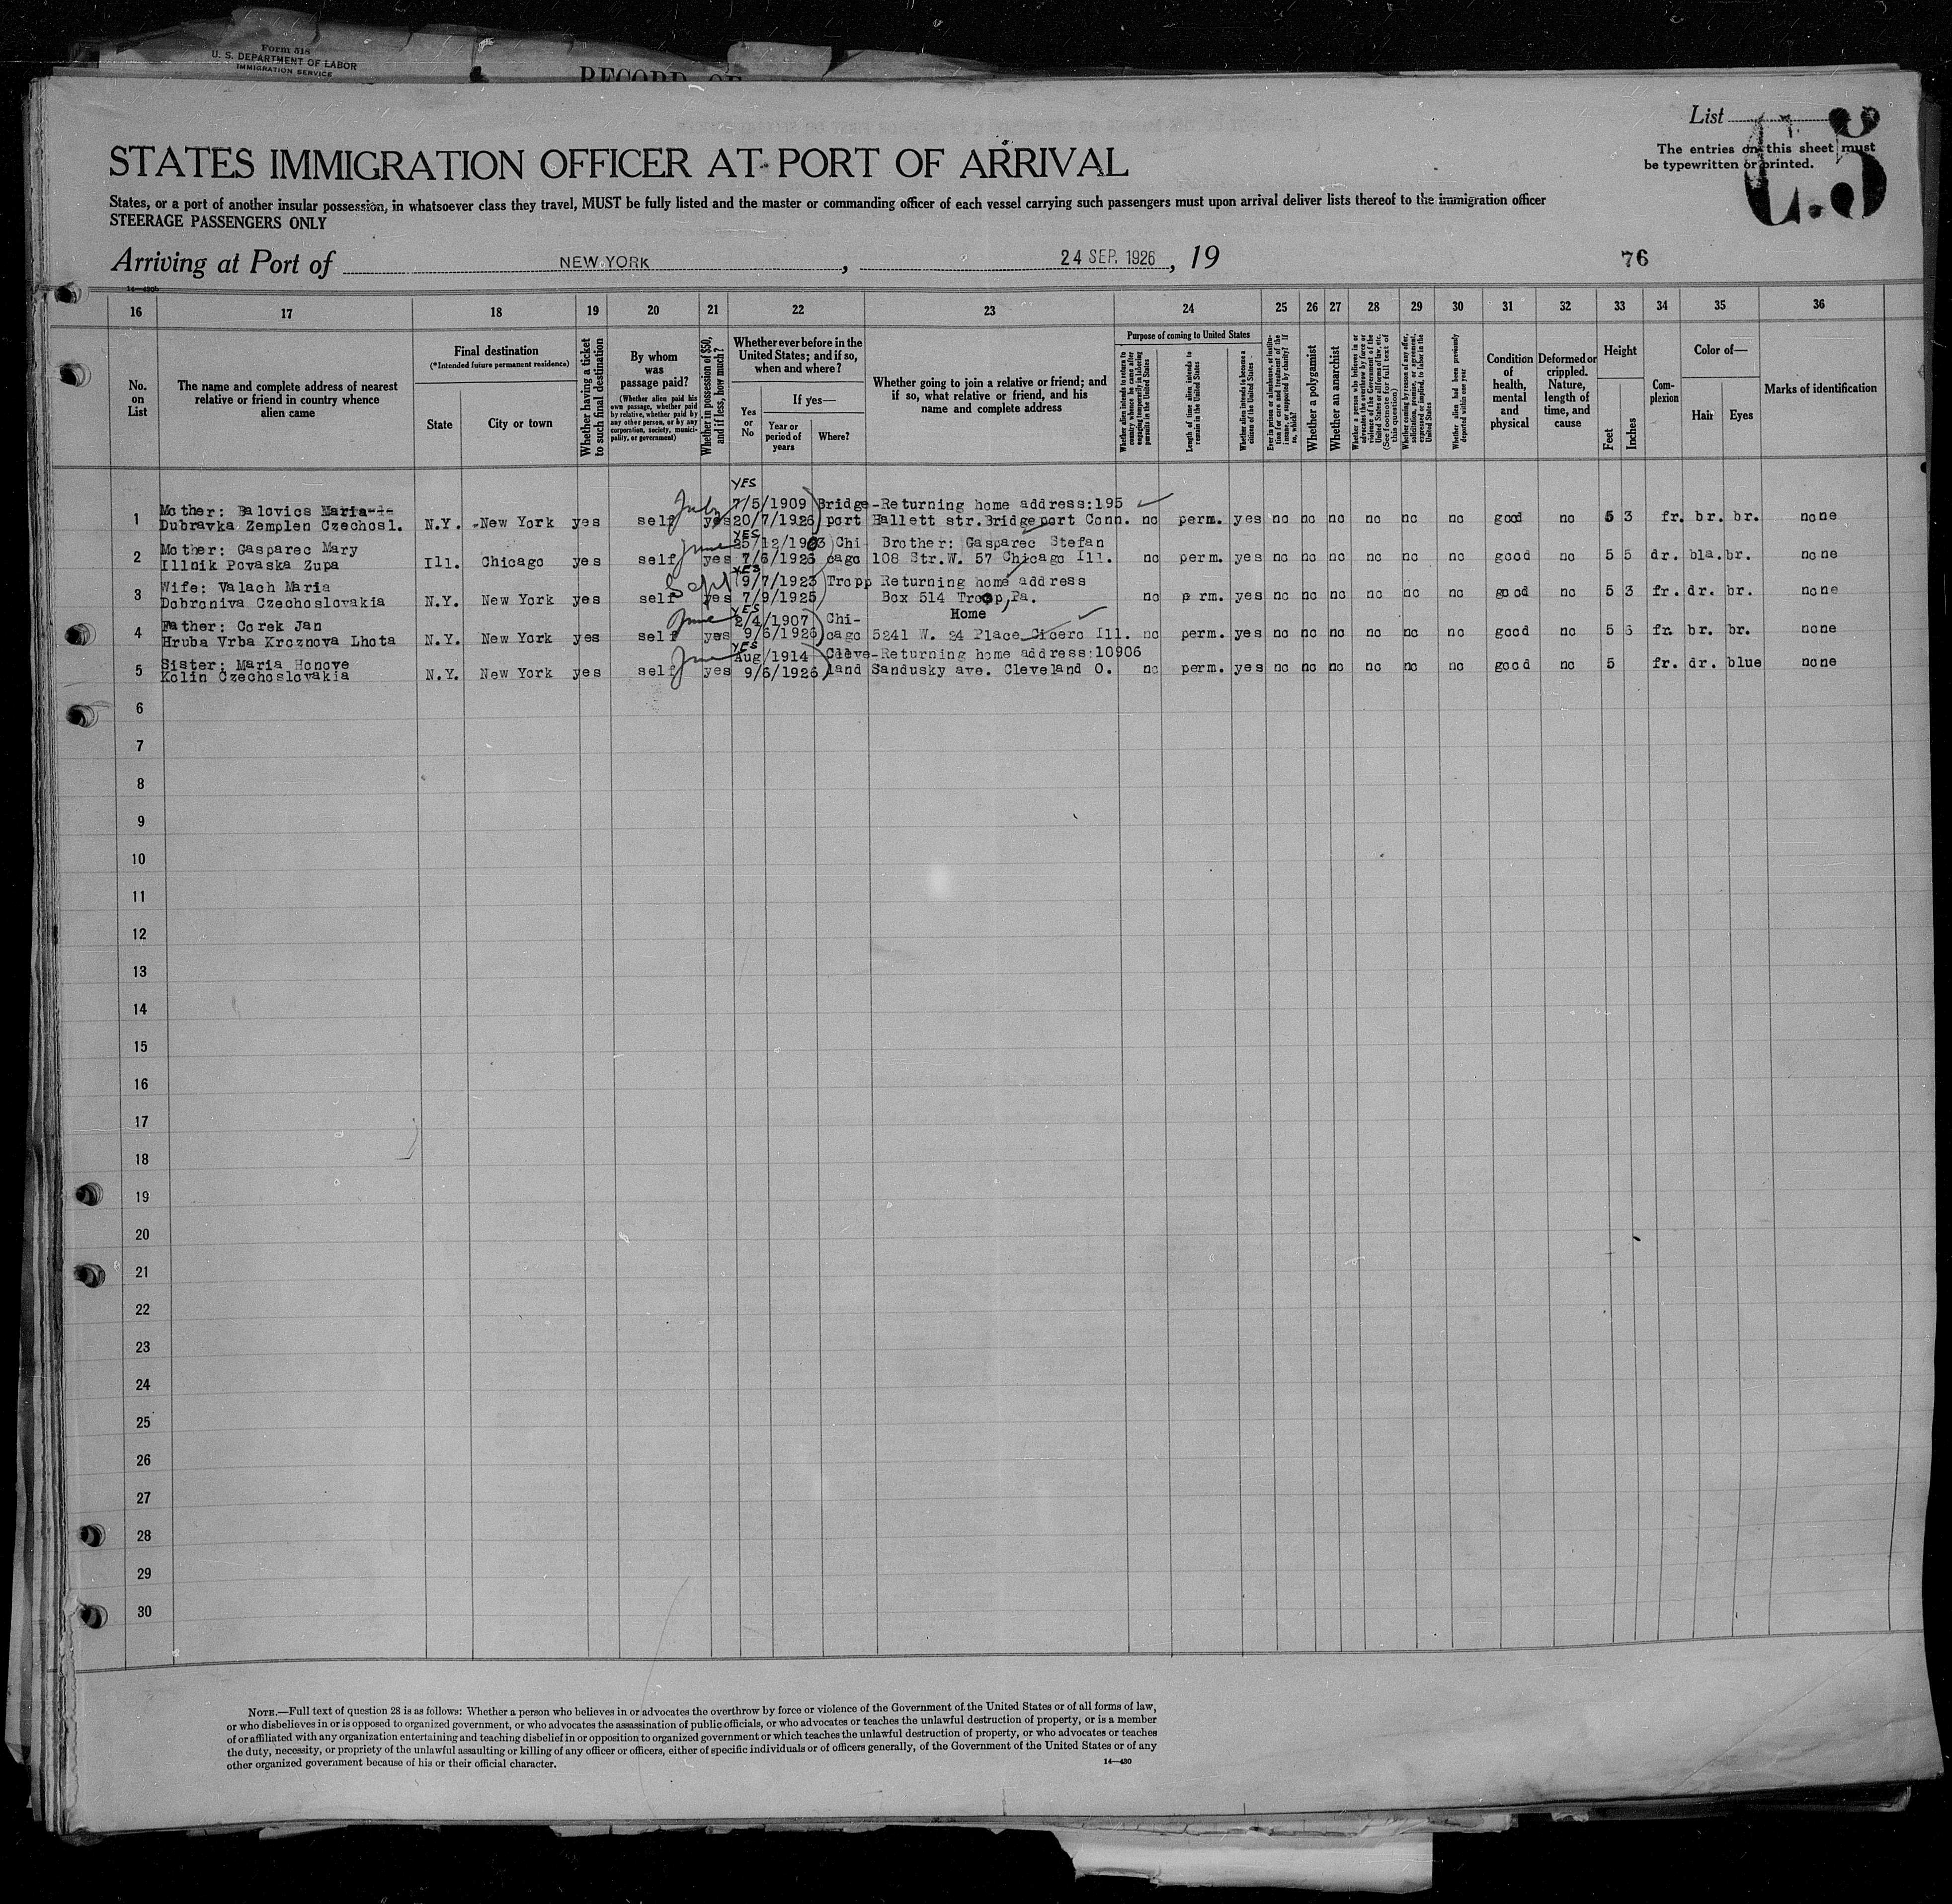 Form 518
U. S. DEPARTMENT OF LABOR
IMMIGRATION SERVICE
RECORD OF
List
C.3
The entries on this sheet must
be typewritten or printed.
STATES IMMIGRATION OFFICER AT PORT OF ARRIVAL
States, or a port of another insular possession, in whatsoever class they travel, MUST be fully listed and the master or commanding officer of each vessel carrying such passengers must upon arrival deliver lists thereof to the immigration officer
STEERAGE PASSENGERS ONLY
Arriving at Port of NEW YORK, 24 SEP. 1926, 19
76
14—430b
16 17 18 19 20 21 22 23 24 25 26 27 28 29 30 31 32 33 34 35 36
No. on List
The name and complete address of nearest relative or friend in country whence alien came
Final destination
(*Intended future permanent residence)
State
City or town
Whether having a ticket to such final destination
By whom was passage paid?
(Whether alien paid his own passage, whether paid by relative, whether paid by any other person, or by any corporation, society, municipality, or government)
Whether in possession of $50, and if less, how much?
Whether ever before in the United States; and if so, when and where?
Yes or No
If yes—
Year or period of years
Where?
Whether going to join a relative or friend; and if so, what relative or friend, and his name and complete address
Purpose of coming to United States
Whether alien intends to return to country whence he came after engaging temporarily in laboring pursuits in the United States
Length of time alien intends to remain in the United States
Whether alien intends to become a citizen of the United States
Ever in prison or almshouse, or institution for care and treatment of the insane, or supported by charity? If so, which?
Whether a polygamist
Whether an anarchist
Whether a person who believes in or advocates the overthrow by force or violence of the Government of the United States or all forms of law, etc. (See footnote for full text of this question)
Whether coming by reason of any offer, solicitation, promise, or agreement, expressed or implied, to labor in the United States
Whether alien had been previously deported within one year
Condition of health, mental and physical
Deformed or crippled. Nature, length of time, and cause
Height
Feet
Inches
Complexion
Color of—
Hair
Eyes
Marks of identification
YES
Mother: Balovics Maria July 7/5/1909 Bridge-Returning home address:195
1 Dubravka Zemplen Czechosl. N.Y. New York yes self yes 20/7/1926 port Ballett str.Bridgeport Conn. no perm. yes no no no no no no good no 5 3 fr. br. br. none
YES
Mother: Gasparec Mary June 25/12/1903 Chi- Brother: Gasparec Stefan
2 Illnik Povaska Zupa Ill. Chicago yes self yes 7/6/1926 cago 108 Str.W. 57 Chicago Ill. no perm. yes no no no no no no good no 5 5 dr. bla. br. none
YES
Wife: Valach Maria Sept 9/7/1923 Tropp Returning home address
3 Dobroniva Czechoslovakia N.Y. New York yes self yes 7/9/1925 Box 514 Troop, Pa. no perm. yes no no no no no no good no 5 3 fr. dr. br. none
YES Home
Father: Corek Jan June 2/4/1907 Chi-
4 Hruba Vrba Kroznova Lhota N.Y. New York yes self yes 9/6/1926 cago 5241 W. 24 Place Cicero Ill. no perm. yes no no no no no no good no 5 fr. br. br. none
YES
Sister: Maria Honove June Aug/1914 Cleve-Returning home address:10906
5 Kolin Czechoslovakia N.Y. New York yes self yes 9/6/1926 land Sandusky ave. Cleveland O. no perm. yes no no no no no no good no 5 fr. dr. blue none
6
7
8
9
10
11
12
13
14
15
16
17
18
19
20
21
22
23
24
25
26
27
28
29
30
NOTE.—Full text of question 28 is as follows: Whether a person who believes in or advocates the overthrow by force or violence of the Government of the United States or of all forms of law,
or who disbelieves in or is opposed to organized government, or who advocates the assassination of public officials, or who advocates or teaches the unlawful destruction of property, or is a member
of or affiliated with any organization entertaining and teaching disbelief in or opposition to organized government or which teaches the unlawful destruction of property, or who advocates or teaches
the duty, necessity, or propriety of the unlawful assaulting or killing of any officer or officers, either of specific individuals or of officers generally, of the Government of the United States or of any
other organized government because of his or their official character.
14—430